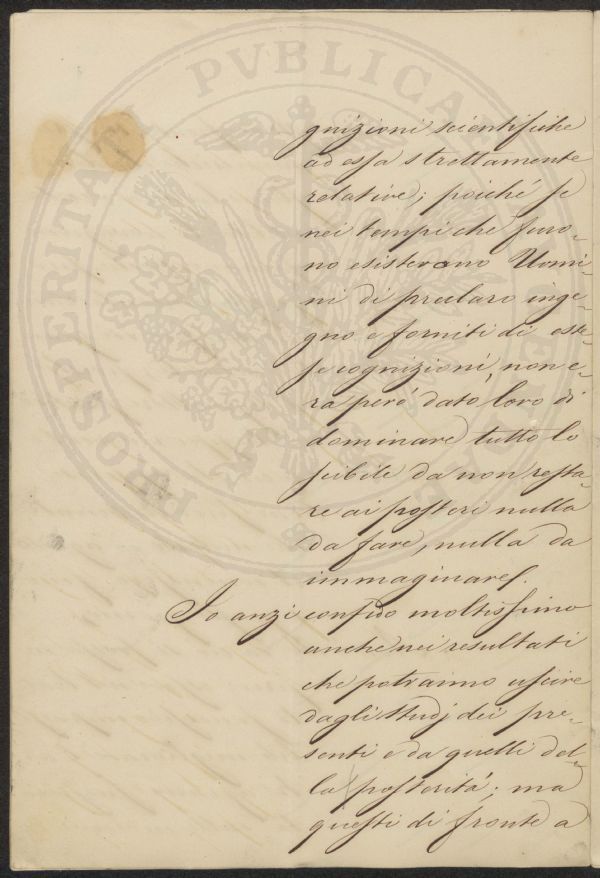 gnizioni scientifiche
ad essa strettamente
relative; poiché se
nei tempi che furo-
no esistevano Uomi-
ni di preclaro inge-
gno e forniti di este-
se cognizioni, non e-
ra peró dato loro di
dominare tutto lo
scibile da non resta-
re ai posteri nulla
da fare, nulla da
immaginare.
Io anzi confido moltissimo
anche nei resultati
che potranno uscire
dagli studj dei pre-
senti e da quelli del-
la posteritá; ma
questi di fronte a
PROSPERITATI PVBLICAE